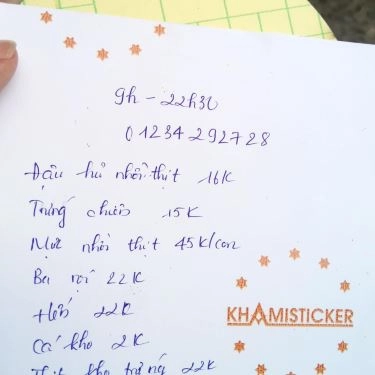 9h - 22h30
01234292728
Đậu hủ nhồi thịt 16K
Trứng chiên 15K
Mực nhồi thịt 45K/con
Ba rọi 22K
Hến 22K
KHAMISTICKER
Cá kho 2K
Thịt kho trứng 22K